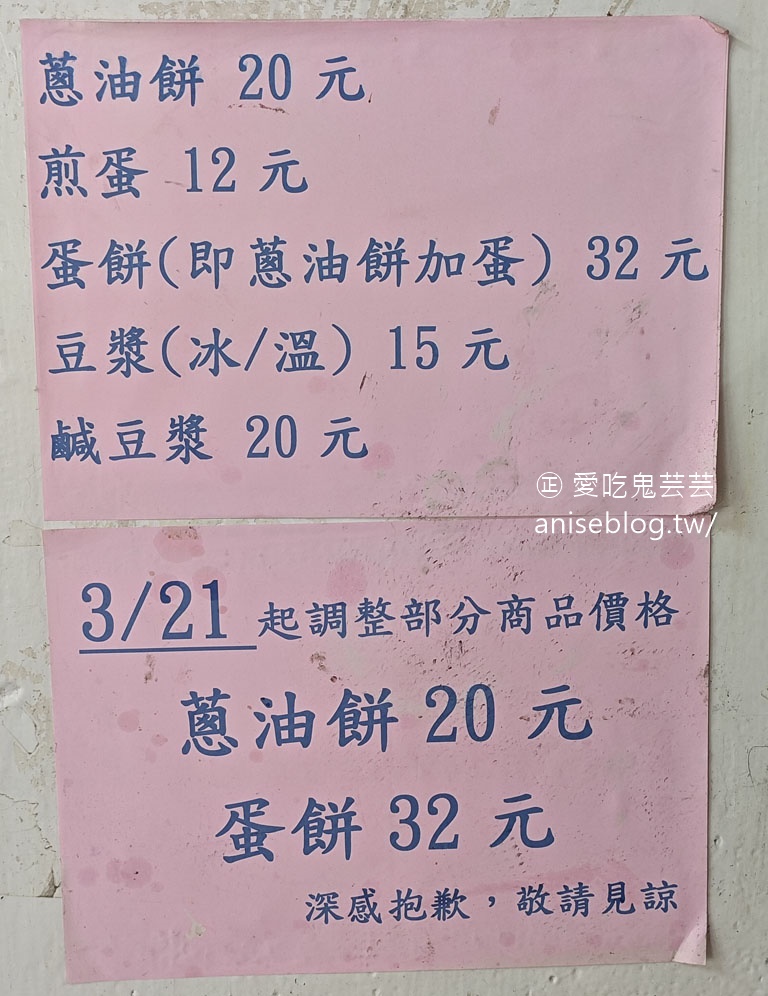 蔥油餅 20 元
煎蛋 12 元
蛋餅(即蔥油餅加蛋) 32 元
豆漿(冰/溫) 15 元
鹹豆漿 20 元
㊣ 愛吃鬼芸芸
aniseblog.tw/
3/21 起調整部分商品價格
蔥油餅 20 元
蛋餅 32 元
深感抱歉，敬請見諒